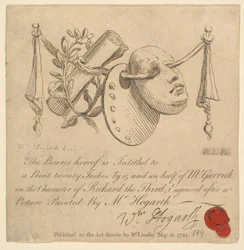 The Bearer hereof is Intitled to
a Print twenty Inches by 15 and an half of Mr. Garrick
in the Character of Richard the Third, Engraved after a
Picture Painted By Mr. Hogarth
Wm Hogarth
Publish'd as the Act directs by Wm May 16, 1746.